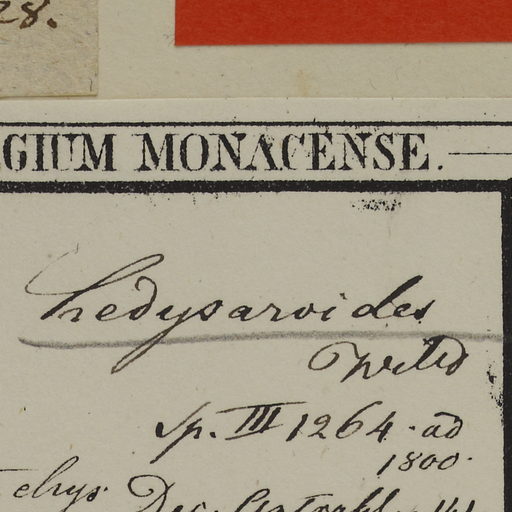 28.
GIUM MONACENSE.
hedysaroides
Willd
sp. III 1264. ad
1800.
chrys. Dec. Astragl.